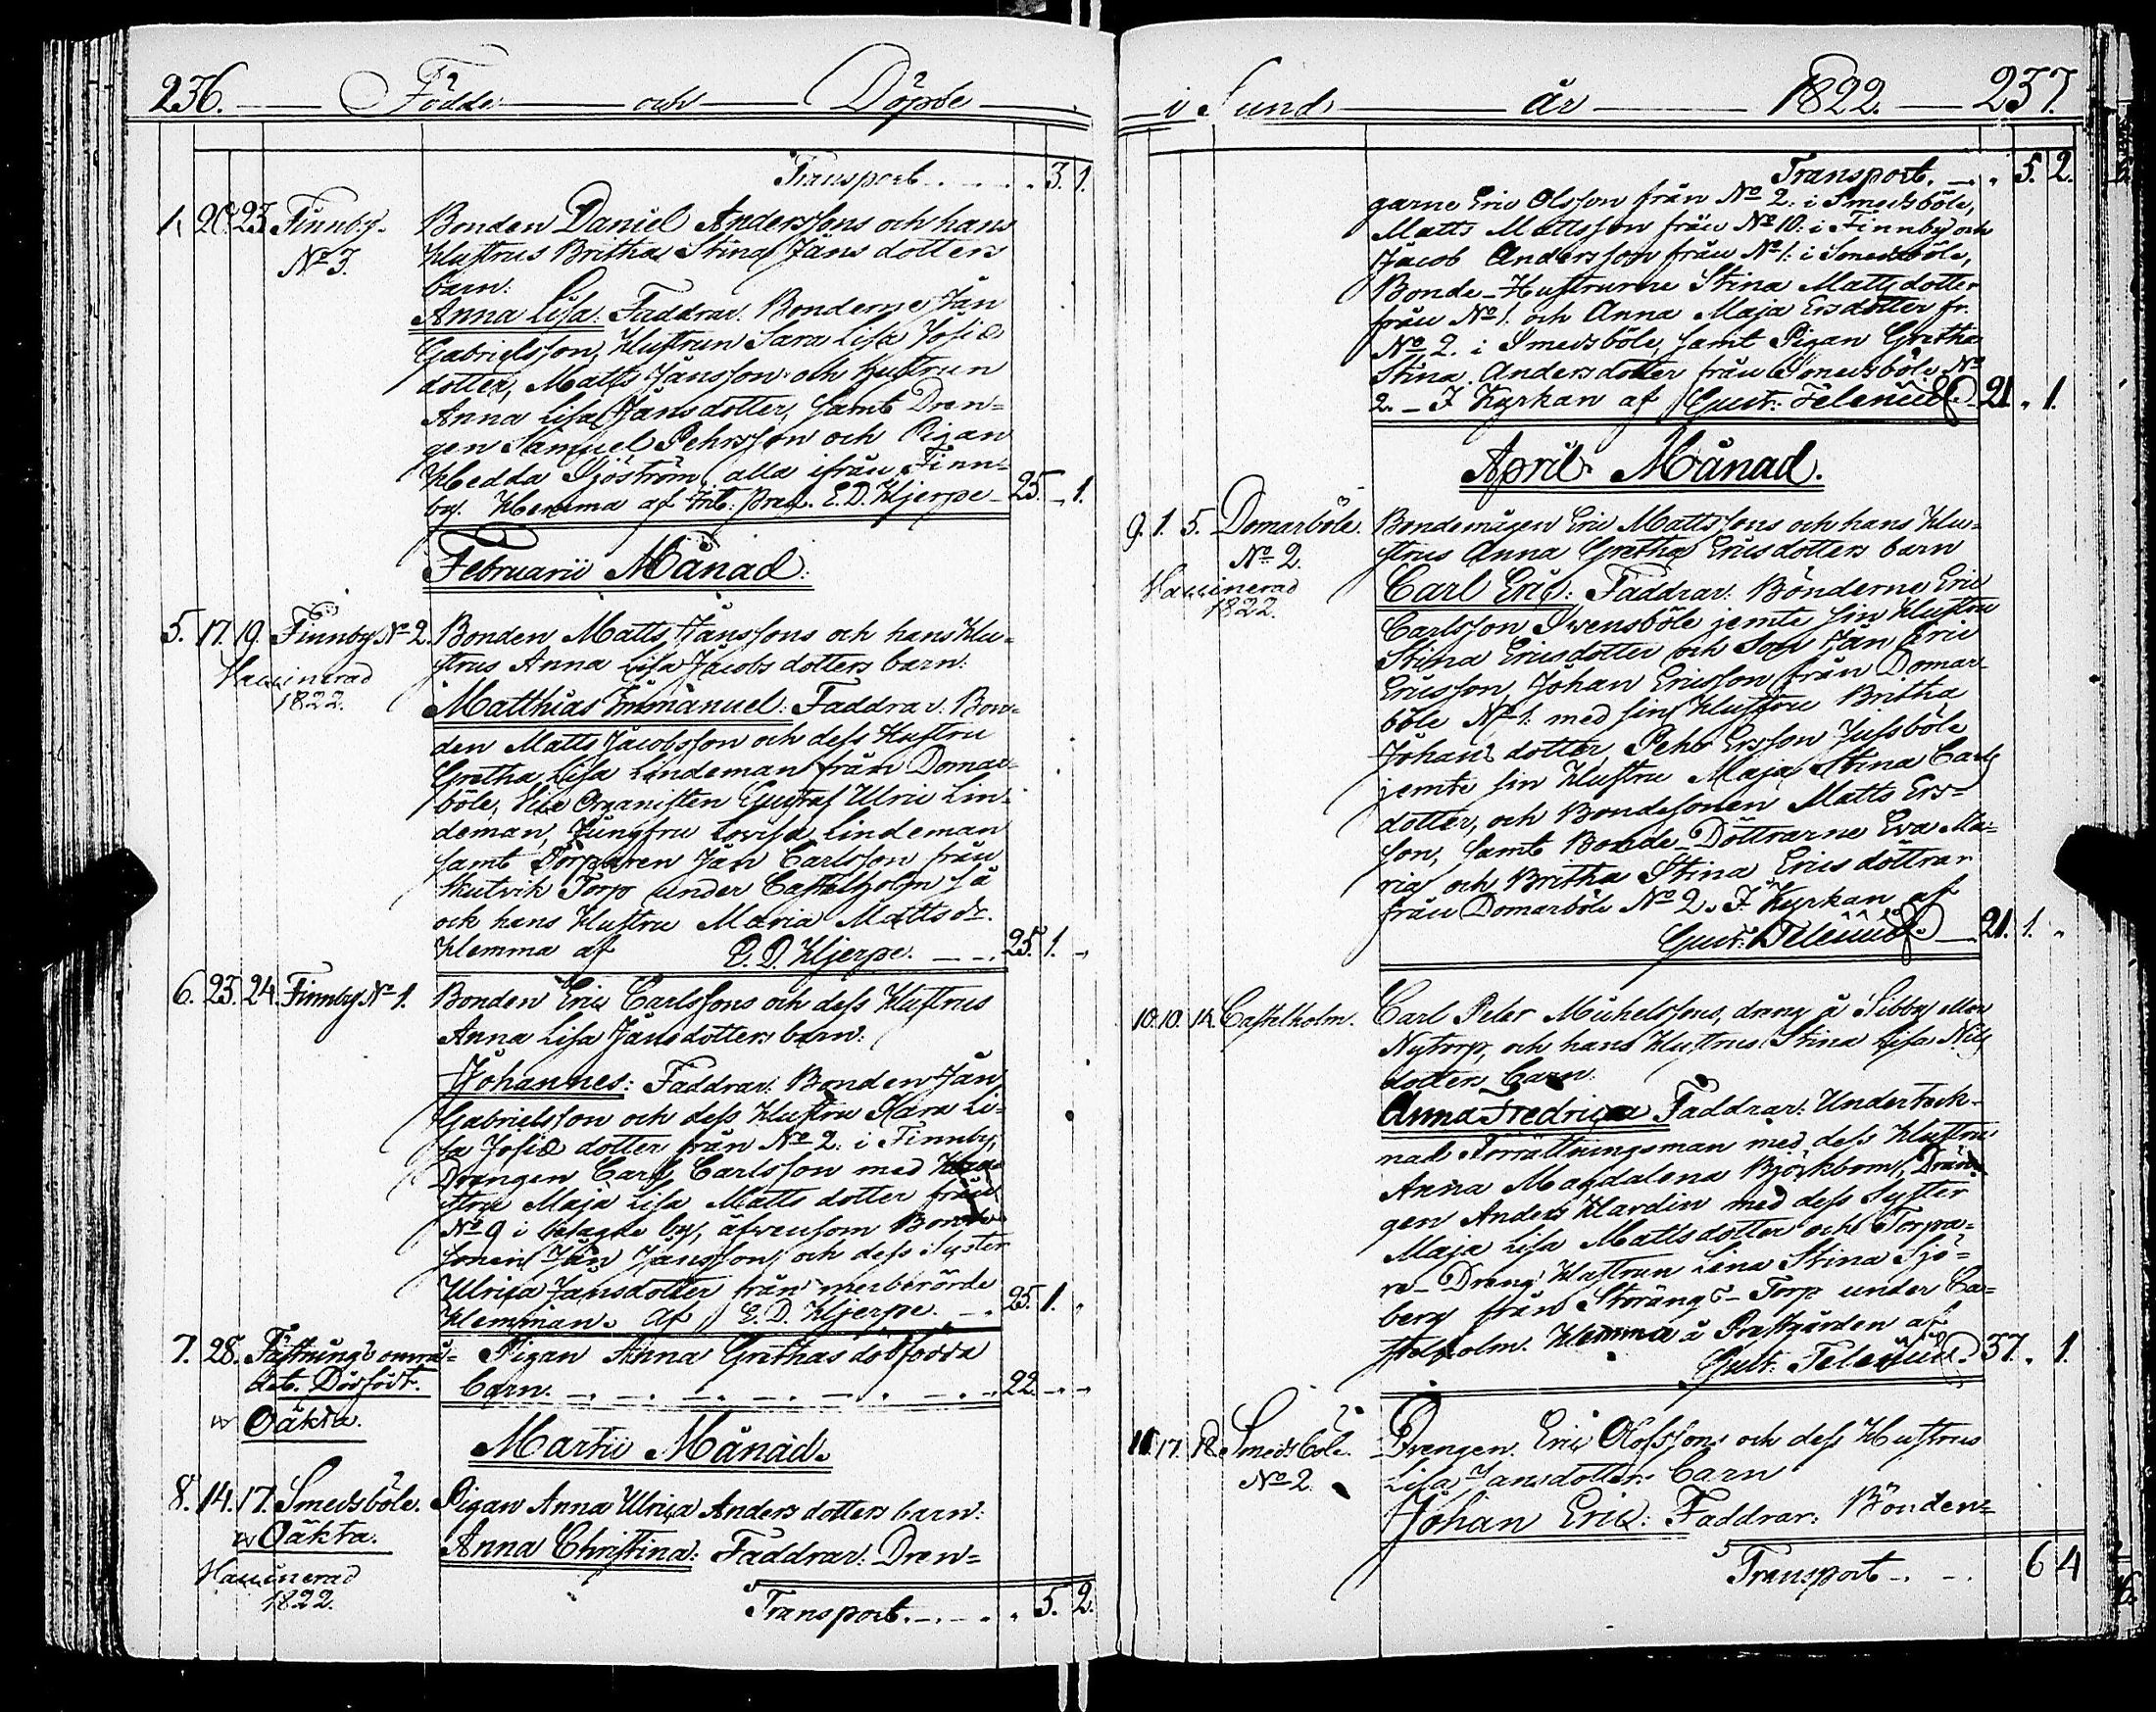 236. Födde och Döpde
Transport 3. 1.
20. 23. Finnby Bonden Daniel Anderssons och hans
No 3. Hustrus Britha Stina Jäns dotters
barn:
Anna Lisa: Faddrar: Bönderne Jan
Gabrielsson, Hustrun Sara Lisa Josiæ
dotter, Matts Jänsson och hustrun
Anna Lisa Jansdotter, samt Dren=
gen Samuel Pehrsson och Pigan
Hedda Sjöström, alla ifrån Finn-
by. Hemma af E. D. Hjerpe 25. 1.
Februarii Månad:
5. 17. 19. Finnby No 2. Bonden Matts Jänssons och hans Hu-
strus Anna Lisa Jacobs dotters barn:
Vaccinerad
1822.
Matthias Emmanuel: Faddrar: Bon-
den Matts Jacobsson och dess Hustru
Gretha Lisa Lindeman från Domar-
böle, Vice Organisten Gustaf Ulric Lin-
deman, Jungfru Lovisa Lindeman
samt Torparen Jan Carlsson från
Skutvik Torp under Castelholm så
och hans Hustru Maria Matts dr.
Hemma af E. D. Hjerpe. 25. 1.
6. 23. 24. Finnby No 1. Bonden Eric Carlssons och dess Hustrus
Anna Lisa Jänsdotters barn:
Johannes: Faddrar: Bonden Jan
Gabrielsson och dess Hustru Sara Li-
sa Josiæ dotter från No 2. i Finnby,
Drengen Carl Carlsson med Hu-
stru Maja Lisa Matts dotter från
No 9 i besagde by, äfvensom Bonde
sonen Jan Jansson och dess Syster
Ulrica Jansdotter från merberörde
Hemman. Af E. D. Hjerpe. 25. 1.
7. 28. Fästnings områ- Pigan Anna Grethas dödfödda
det. Dödfödt. barn. 22.
Oäkta.
Martii Månad.
8. 14. 17. Smedsböle. Pigan Anna Ulrica Anders dotters barn:
Oäkta. Anna Christina: Faddrar: Dren=
Vaccinerad
1822.
Transport 5. 2.
i Sund år 1822. 237.
Transport. 5. 2.
garne Eric Olsson från No 2. i Smedsböle,
Matts Mattsson från No 10: i Finnby och
Jacob Andersson från No 1: i Smedsböle,
Bonde-Hustrurne Stina Matts dotter
från No 1. och Anna Maja Ersdotter fr.
No 2. i Smedsböle, samt Pigan Gretha
Stina Anders dotter från Smedsböle No
2. - I Kyrkan af Gust: Telenius 21. 1.
April Månad.
9. 1. 5. Domarböle. Bondemågen Eric Mattssons och hans Hu-
No 2. strus Anna Gretha Ersdotters barn
Vaccinerad
1822.
Carl Eric: Faddrar: Bönderne Eric
Carlsson Svensböle jemte sin Hustru
Stina Ericsdotter och Son Jan Eric
Ericsson, Johan Ericsson från Domar-
böle No 1: med sin Hustru Britha
Johans dotter, Pehr Ersson Jussböle
jemte sin Hustru Maja Stina Carls
dotter, och Bondesonen Matts Ers-
son, samt Bonde-Döttrarne Eva Ma-
ria och Britha Stina Erics döttrar
från Domarböle No 2. I Kyrkan af
Gust: Telenius 21. 1.
10. 10. 14. Castelholm. Carl Peter Michelssons, dräng å Sibby eller
Nytorp, och hans Hustrus Stina Lisa Nils
dotters Barn:
Anna Fredrica Faddrar: Underteck-
nad Förrättningsman med dess Hustru
Anna Magdalena Björkbom, Drän-
gen Anders Hardin med dess Syster
Maja Lisa Mattsdotter och Torpa-
re-Dreng Hustrun Lena Stina Sjö-
berg från Storängs-Torp under Ca-
stelholm. Hemma å Prestgården af
Gust: Telenius 37. 1.
11. 17. 18. Smedsböle. Drengen Eric Olofssons och dess Hustrus
No 2. Lisa Jansdotters barn
Johan Eric: Faddrar: Bonden=
Transport 6 4